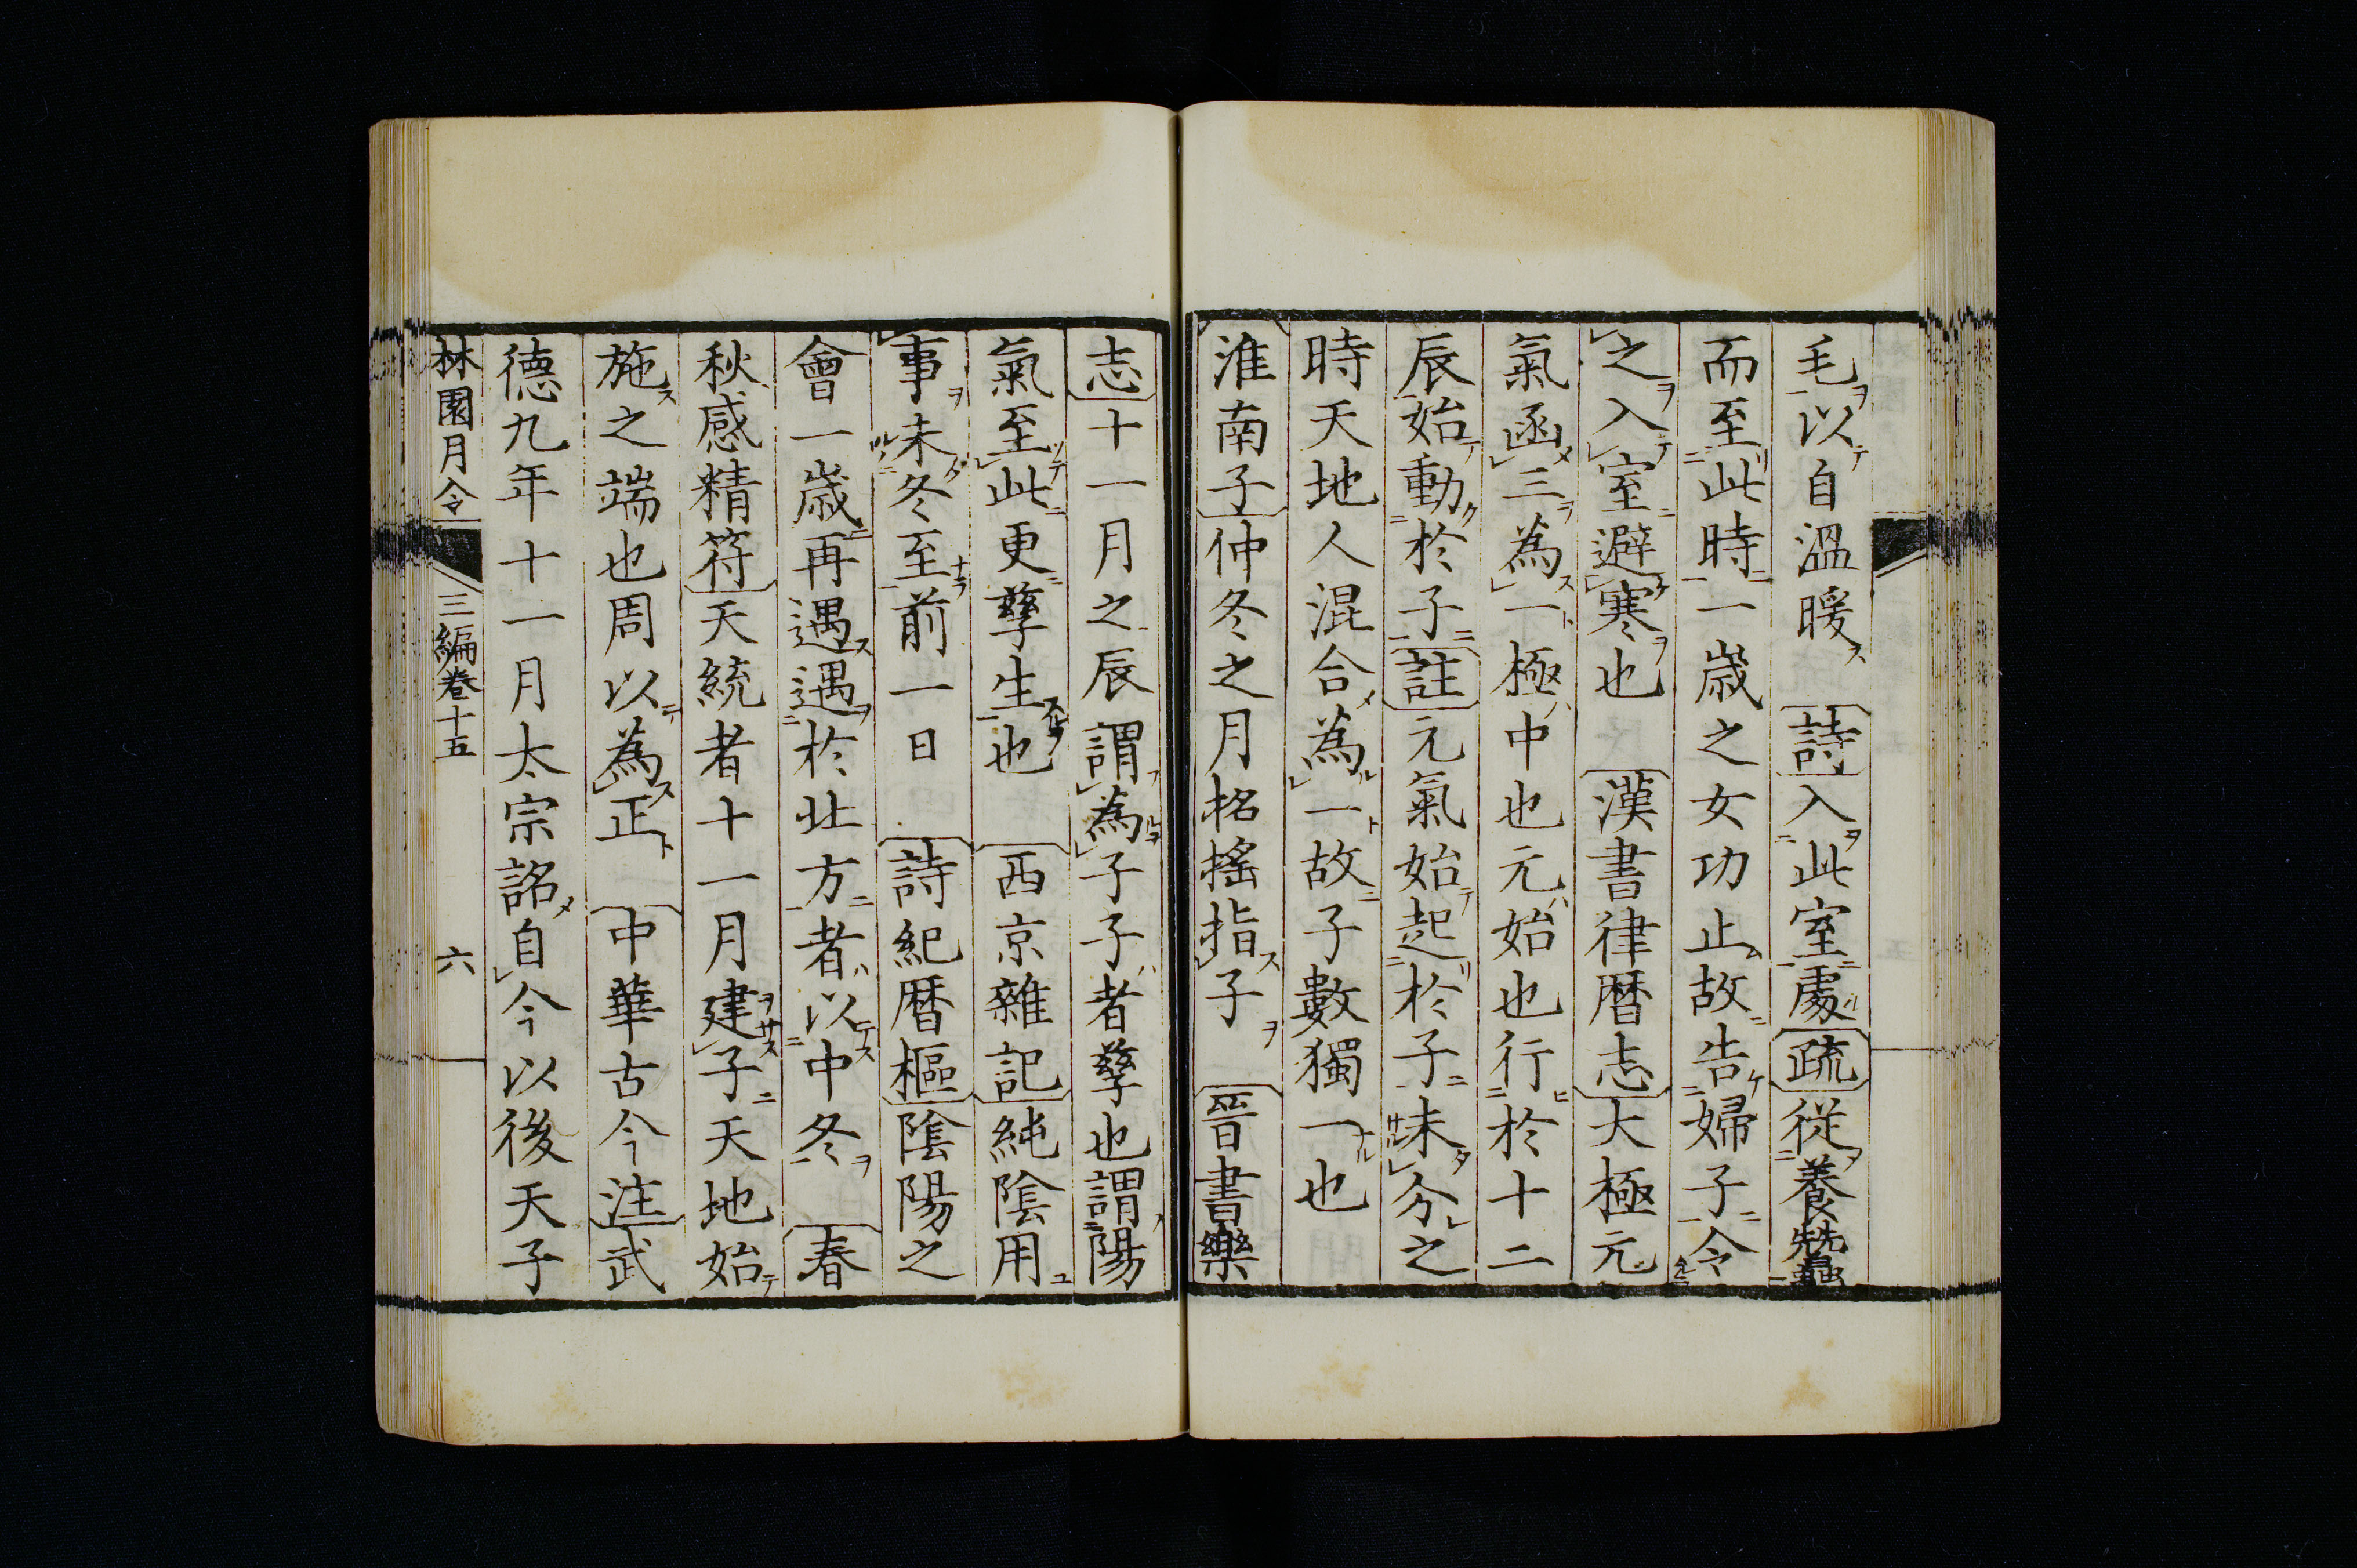 毛以自溫暖 詩入此室處疏從養蠶
而至此時一歲之女功止故告婦子令
之入室避寒也 漢書律暦志大極元
氣函三為一極中也元始也行於十二
辰始動於子註元氣始起於子未分之
時天地人混合為一故子數獨一也
淮南子仲冬之月招搖指子 晉書樂
志十一月之辰謂為子子者孳也謂陽
氣至此更孳生也 西京雜記純陰用
事未冬至前一日 詩紀暦樞陰陽之
會一歲再遇遇於北方者以中冬 春
秋感精符天統者十一月建子天地始
施之端也周以為正 中華古今注武
德九年十一月太宗詔自今以後天子
林園月令 三編卷十五 六